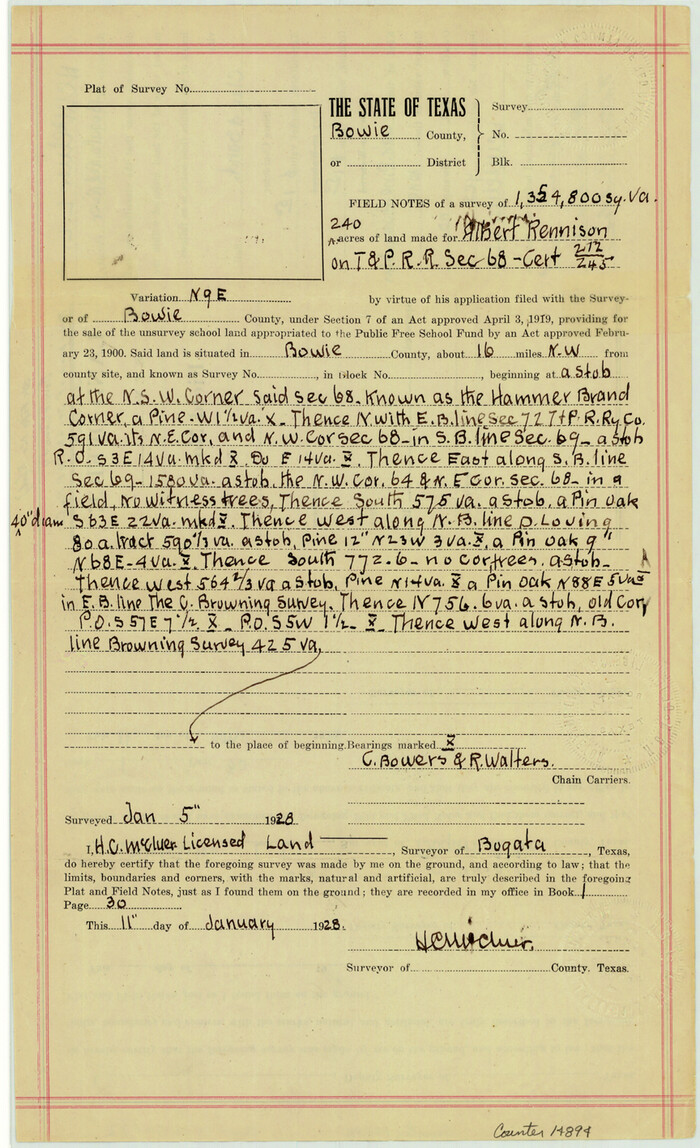 Plat of Survey No.
THE STATE OF TEXAS
Bowie County,
or District
Survey
No.
Blk.
FIELD NOTES of a survey of 1,354,800 sq. Va.
240
acres of land made for Albert Rennison
on T&P. R.R. Sec 68 - Cert 212/245
Variation N9E by virtue of his application filed with the Survey-
or of Bowie County, under Section 7 of an Act approved April 3, 1919, providing for
the sale of the unsurvey school land appropriated to the Public Free School Fund by an Act approved Febru-
ary 23, 1900. Said land is situated in Bowie County, about 16 miles N.W from
county site, and known as Survey No. , in Block No. , beginning at a stob
at the N.S.W. Corner said sec 68. Known as the Hammer Brand
Corner, a Pine - W1½va. x. Thence N with E.B. line Sec 72 T+P.R.Ry Co.
591 va. its N.E. Cor, and N.W. Cor sec 68 - in S.B. line Sec. 69 - a stob
R.O. S3E 14va. mkd X. Do E 14va. X. Thence East along S.B. line
Sec 69 - 1580 va. a stob. the N.W. Cor. 64 & N.E Cor. sec. 68 - in a
field, No witness trees, Thence South 575 va. a stob, a Pin oak
40" diam S63E 22va. mkd X. Thence west along N.B. line D. Loving
80 a. tract 590⅓ va. a stob, Pine 12" N23W 3 va. X, a Pin oak 9"
N68E - 4va. X. Thence South 772.6 - no cor, trees, a stob -
Thence west 564⅔ va a stob, Pine N14va. X a Pin Oak N88E 5va X
in E.B. line The C. Browning Survey. Thence N 756.6va. a stob, old Cor,
P.O. S57E 7½ X - P.O. S5W 1½ - X. Thence west along N.B.
line Browning Survey 425 va,
to the place of beginning. Bearings marked X
C. Bowers & R. Walters.
Chain Carriers.
Surveyed Jan 5" 1928
I, H.C. McCluer Licensed Land , Surveyor of Bogata, Texas,
do hereby certify that the foregoing survey was made by me on the ground, and according to law; that the
limits, boundaries and corners, with the marks, natural and artificial, are truly described in the foregoing
Plat and Field Notes, just as I found them on the ground; they are recorded in my office in Book 1
Page 30
This 11" day of January 1928.
HCMcCluer
Surveyor of County, Texas.
Counter 14894